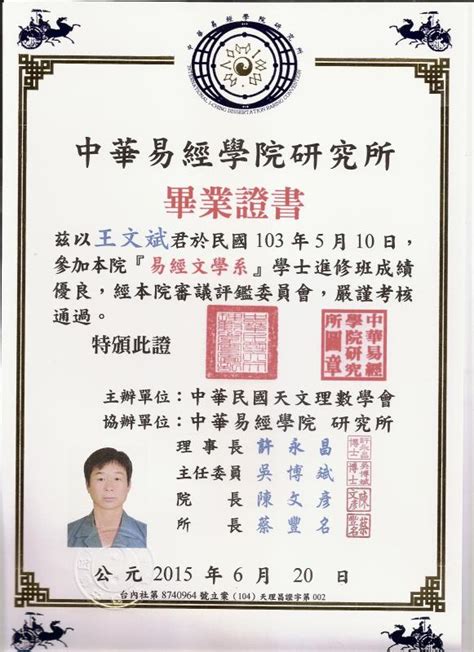 中華易經學院研究所
INTERNATIONAL I-CHING DISSERTATION
中華易經學院研究所
畢業證書
茲以王文斌君於民國 103 年 5 月 10 日，
參加本院『易經文學系』學士進修班成績
優良，經本院審議評鑑委員會，嚴謹考核
通過。
特頒此證
中華易經
學院研究
所圖章
主辦單位：中華民國天文理數學會
協辦單位：中華易經學院 研究所
理事長 許永昌
主任委員 吳博斌
院長 陳文彥
所長 蔡豐名
公元 2015 年 6 月 20 日
台內社第 8740964 號立案（104）天理昌證字第 002